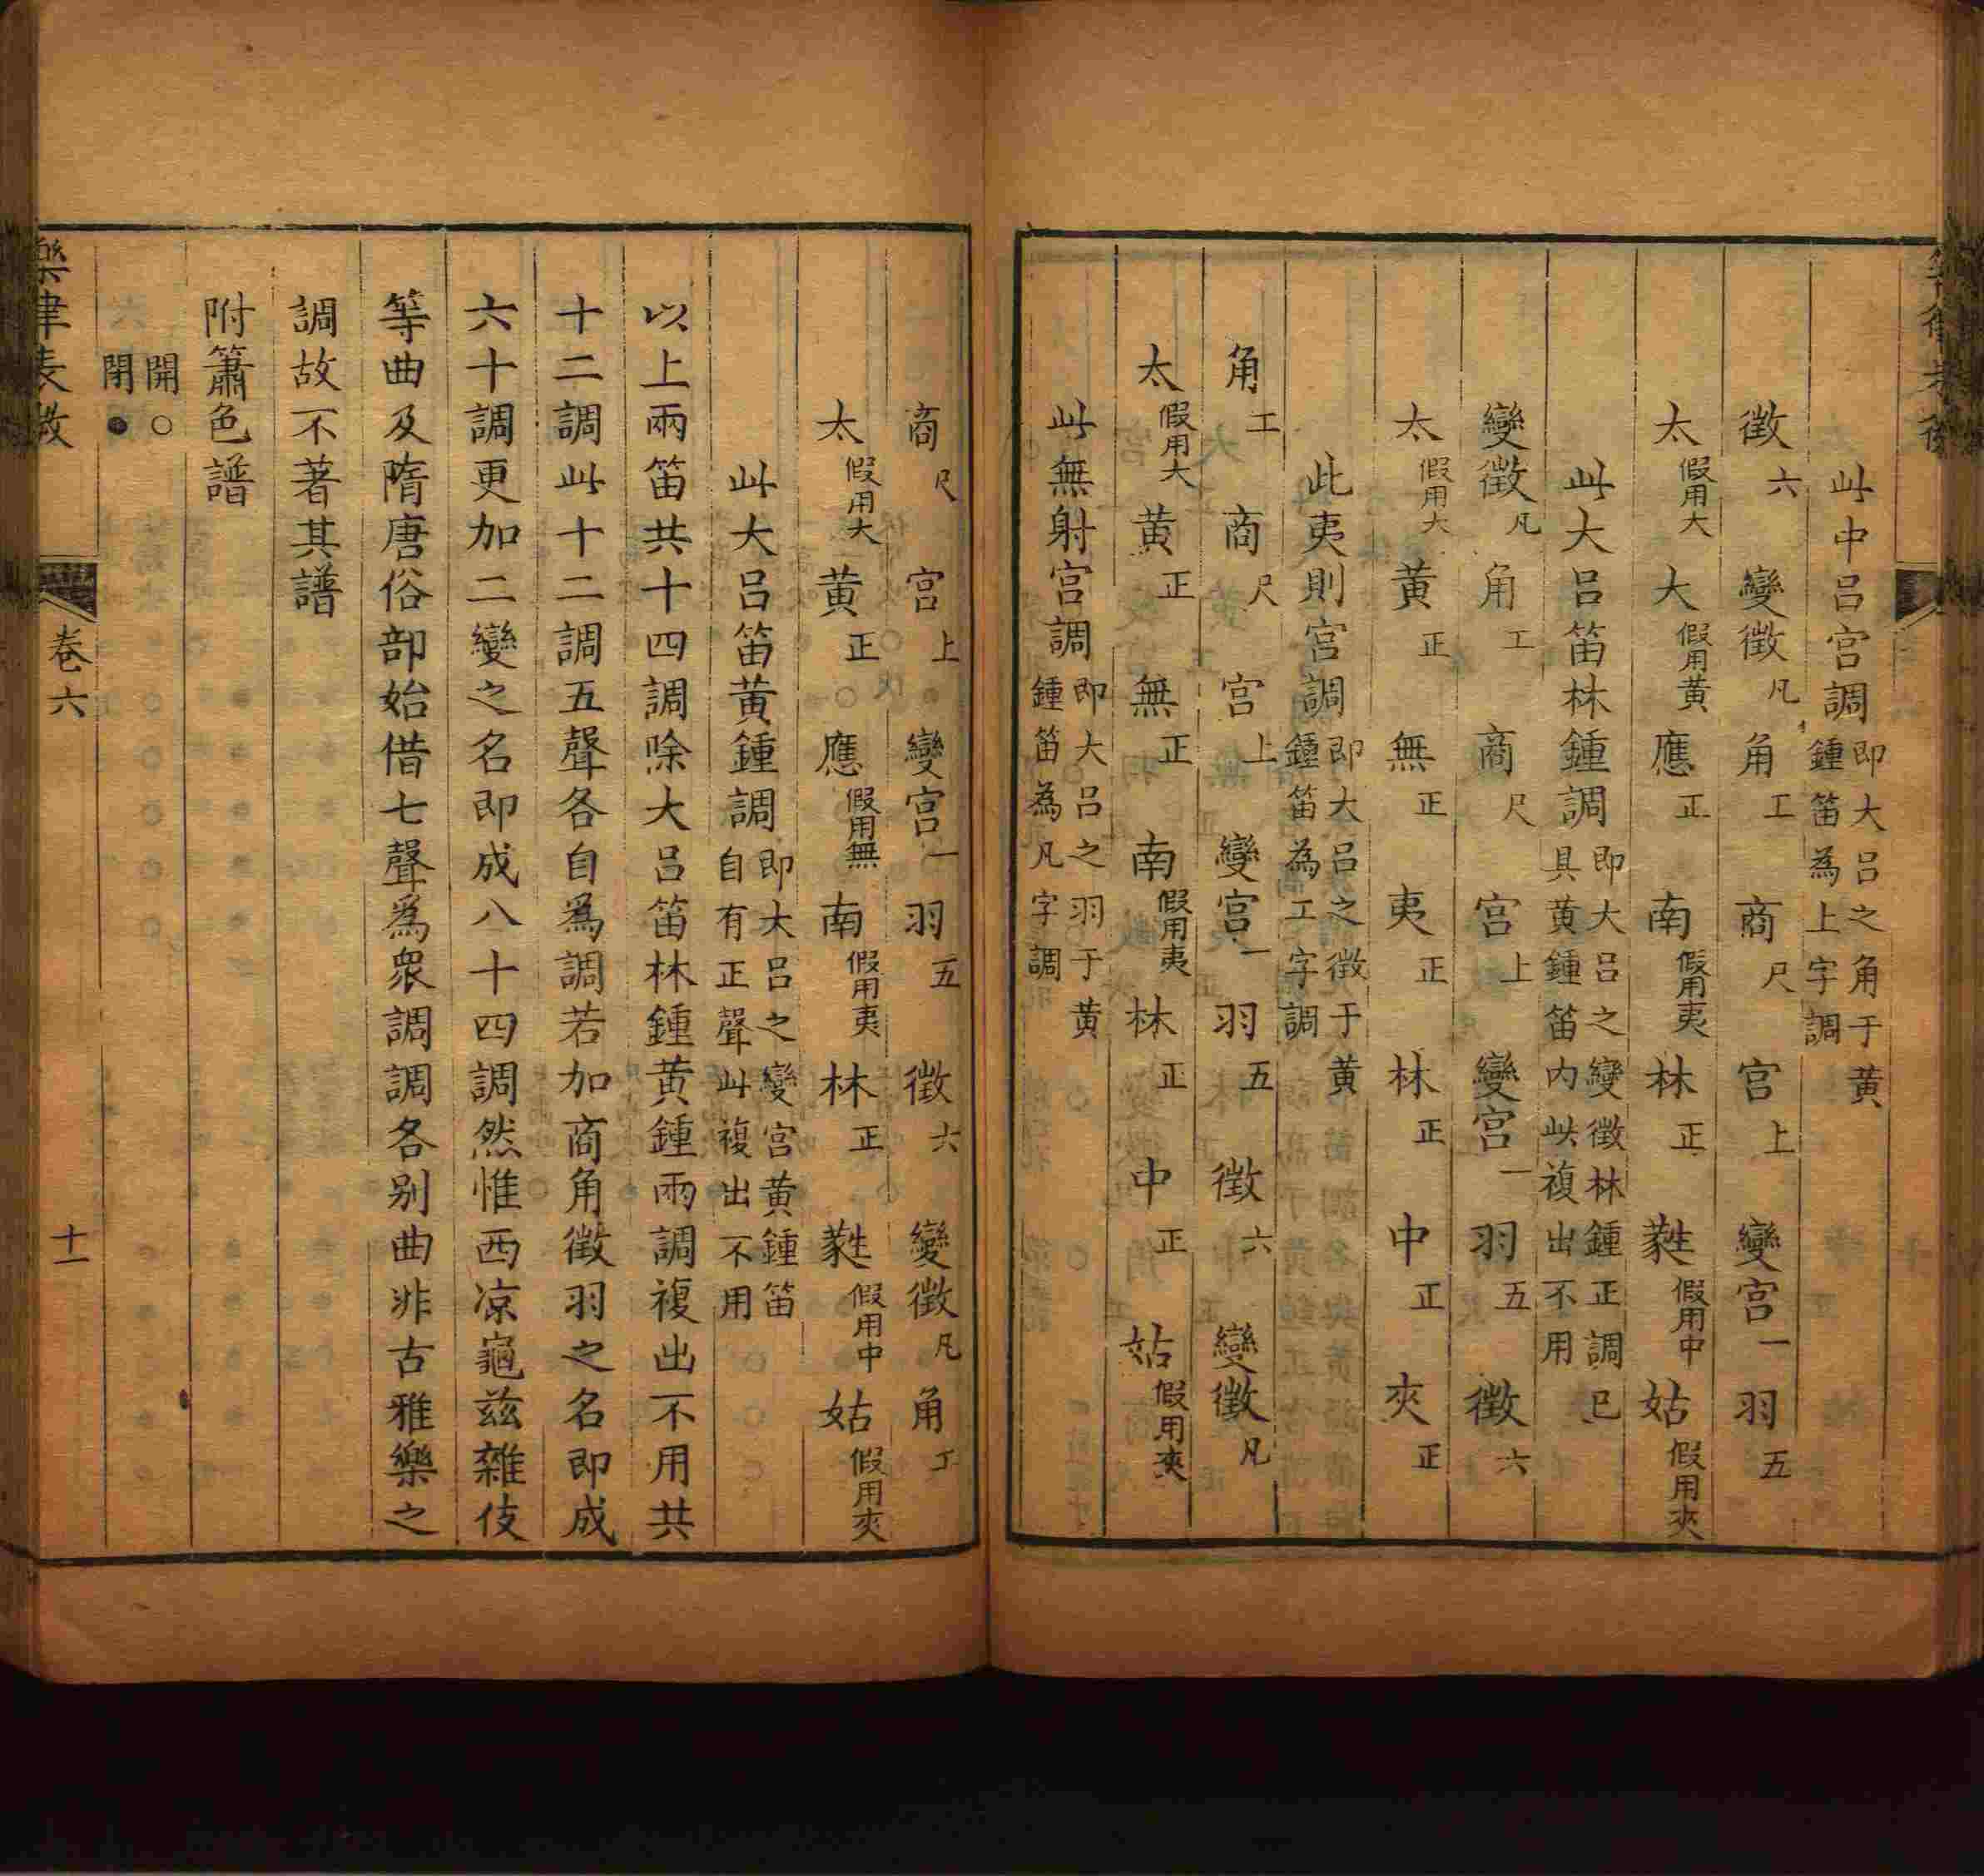 此中呂宮調即大呂之角于黃鍾笛為上字調
徵六 變徵凡 角工 商尺 宮上 變宮一 羽五
太假用大 大假用黃 應正 南假用夷 林正 蕤假用中 姑假用夾
此大呂笛林鍾調即大呂之變徵林鍾正調已具黃鍾笛內此複出不用
變徵凡 角工 商尺 宮上 變宮一 羽五 徵六
太假用大 黃正 無正 夷正 林正 中正 夾正
此夷則宮調即大呂之徵于黃鍾笛為工字調
角工 商尺 宮上 變宮一 羽五 徵六 變徵凡
太假用大 黃正 無正 南假用夷 林正 中正 姑假用夾
此無射宮調即大呂之羽于黃鍾笛為凡字調
商尺 宮上 變宮一 羽五 徵六 變徵凡 角工
太假用大 黃正 應假用無 南假用夷 林正 蕤假用中 姑假用夾
此大呂笛黃鍾調即大呂之變宮黃鍾笛自有正聲此複出不用
以上兩笛共十四調除大呂笛林鍾黃鍾兩調複出不用共
十二調此十二調五聲各自為調若加商角徵羽之名即成
六十調更加二變之名即成八十四調然惟西凉龜茲雜伎
等曲及隋唐俗部始借七聲爲眾調調各別曲非古雅樂之
調故不著其譜
附簫色譜
開○
閉●
卷六
十一